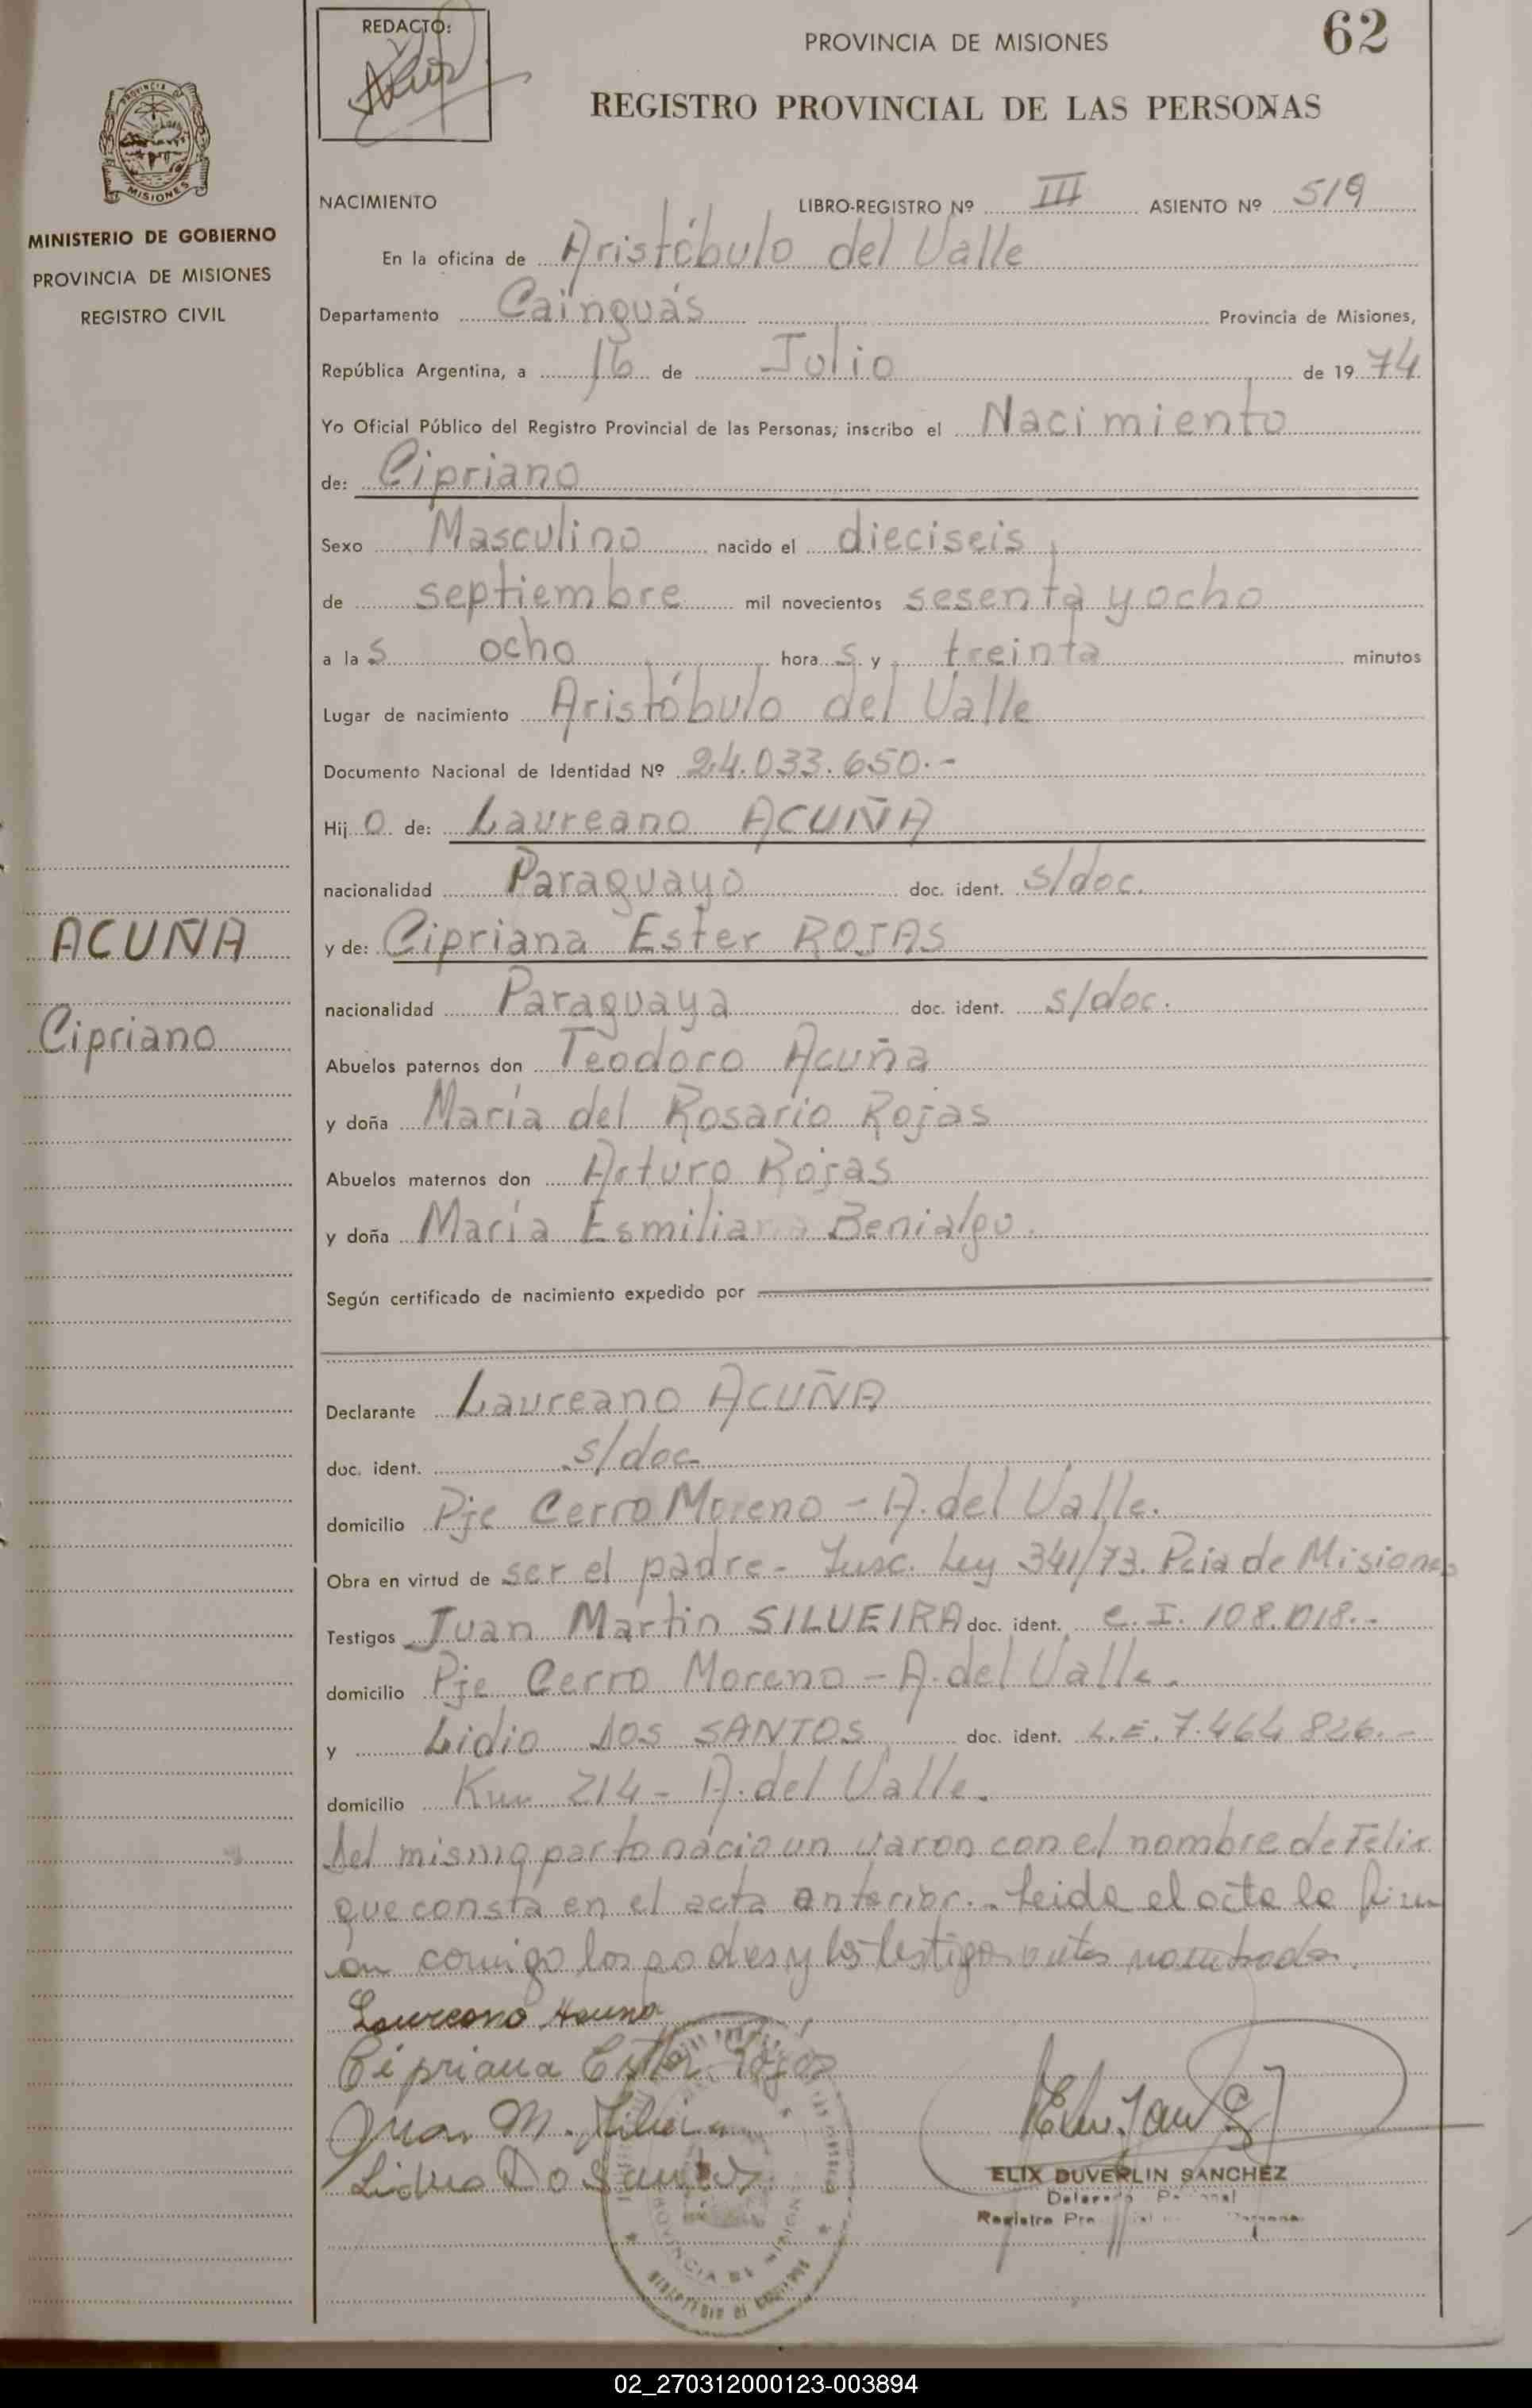 REDACTO:
PROVINCIA DE MISIONES
62
REGISTRO PROVINCIAL DE LAS PERSONAS
PROVINCIA D
MISIONES
MINISTERIO DE GOBIERNO
PROVINCIA DE MISIONES
REGISTRO CIVIL
NACIMIENTO LIBRO-REGISTRO Nº III ASIENTO Nº 519
En la oficina de Aristóbulo del Valle
Departamento Cainguás Provincia de Misiones,
República Argentina, a 16 de Julio de 1974
Yo Oficial Público del Registro Provincial de las Personas, inscribo el Nacimiento
de: Cipriano
Sexo Masculino nacido el dieciseis
de septiembre mil novecientos sesenta y ocho
a las ocho horas y treinta minutos
Lugar de nacimiento Aristóbulo del Valle
Documento Nacional de Identidad Nº 24.033.650.-
Hijo de: Laureano ACUÑA
nacionalidad Paraguayo doc. ident. s/doc.
ACUÑA
y de: Cipriana Ester ROJAS
nacionalidad Paraguaya doc. ident. s/doc.
Cipriano
Abuelos paternos don Teodoro Acuña
y doña María del Rosario Rojas
Abuelos maternos don Arturo Rojas
y doña María Esmiliana Benialgo.
Según certificado de nacimiento expedido por
Declarante Laureano ACUÑA
doc. ident. s/doc
domicilio Pje Cerro Moreno - A. del Valle.
Obra en virtud de ser el padre - Insc. Ley 341/73. Pcia de Misiones
Testigos Juan Martin SILVEIRA doc. ident. C.I. 108.018.-
domicilio Pje Cerro Moreno - A. del Valle.
y Lidio DOS SANTOS doc. ident. L.E. 7.464.826.-
domicilio Km 214 - A. del Valle.
Del mismo parto nácio un varon con el nombre de Felix
que consta en el acta anterior.- Leida el acta la firm
an comigo los padres y los testigos antes nombrados.
Laureano Acuna
Cipriana Ester Rojas
Juan M. Silveira
Lidio Do Santos
ELIX DUVERLIN SANCHEZ
02_270312000123-003894